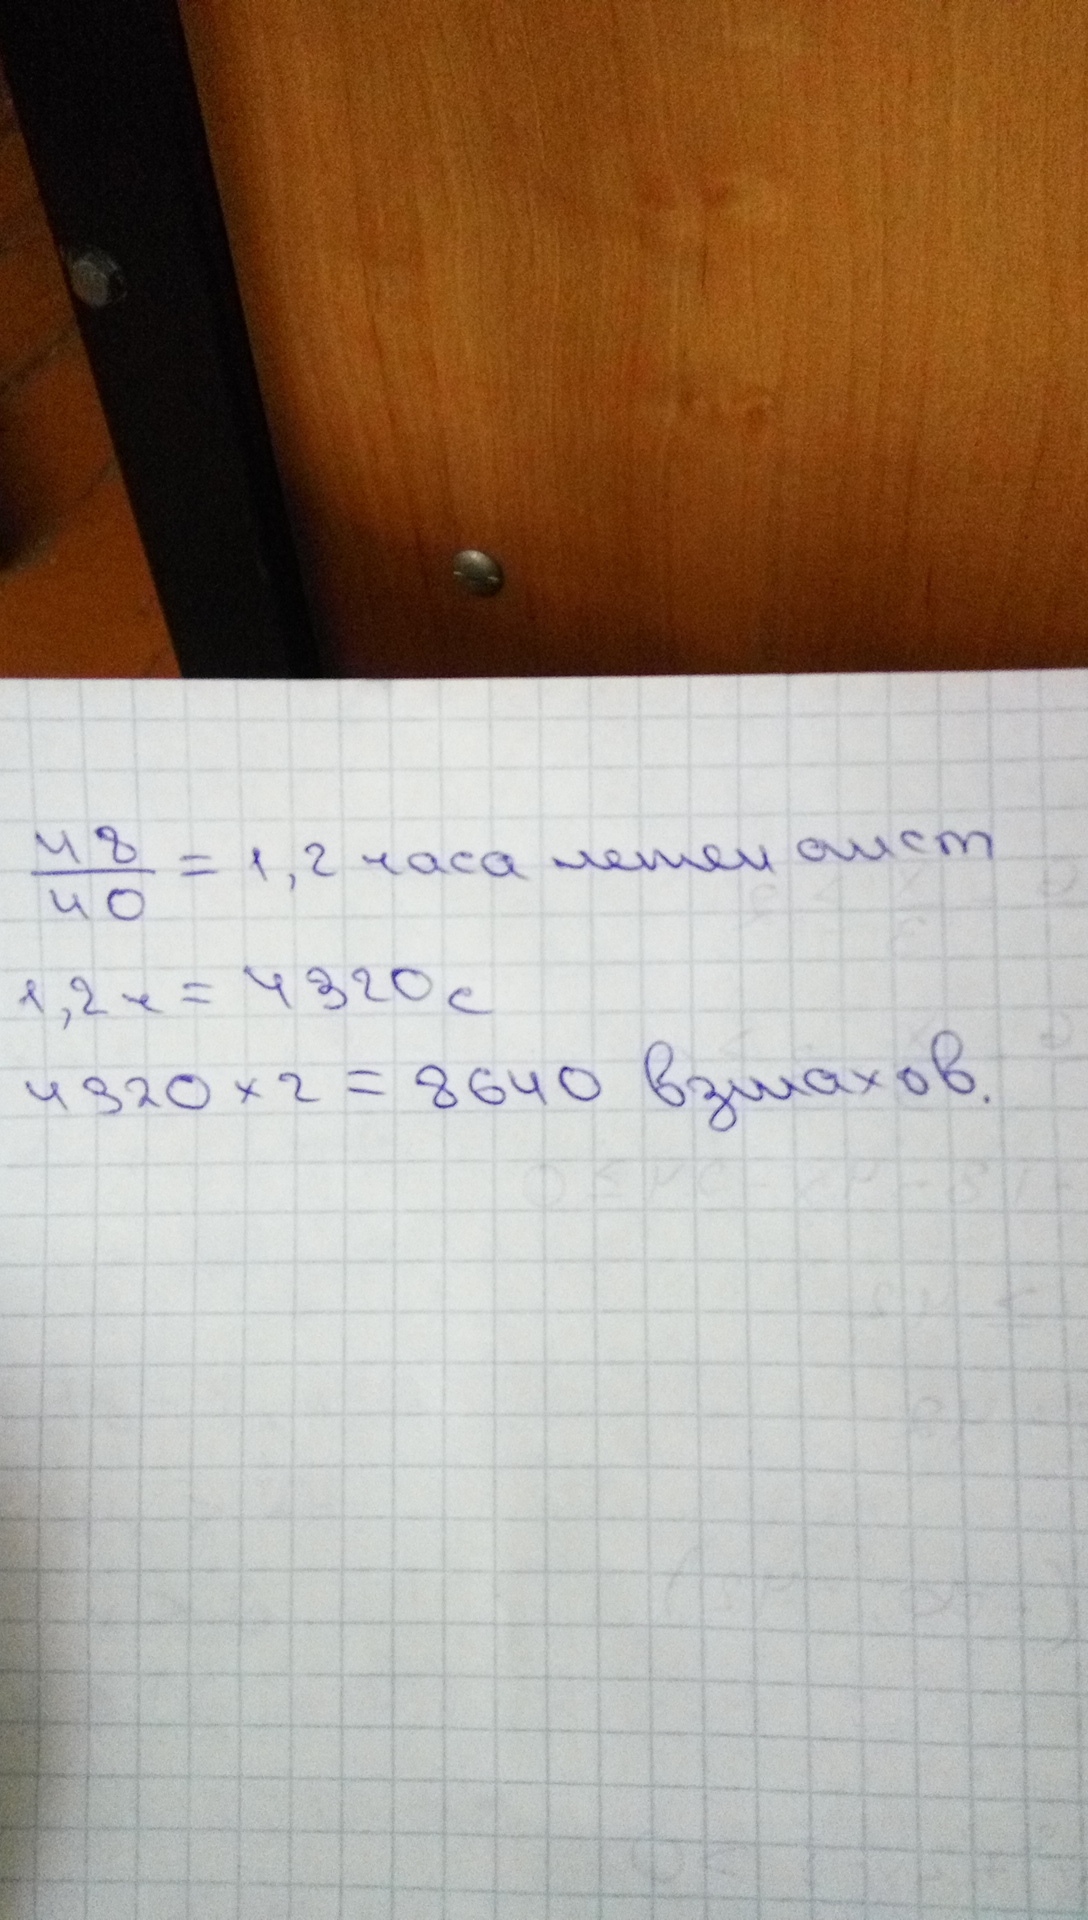 48/40 = 1,2 часа летел аист
1,2 ч = 4320 с
4320 × 2 = 8640 взмахов.